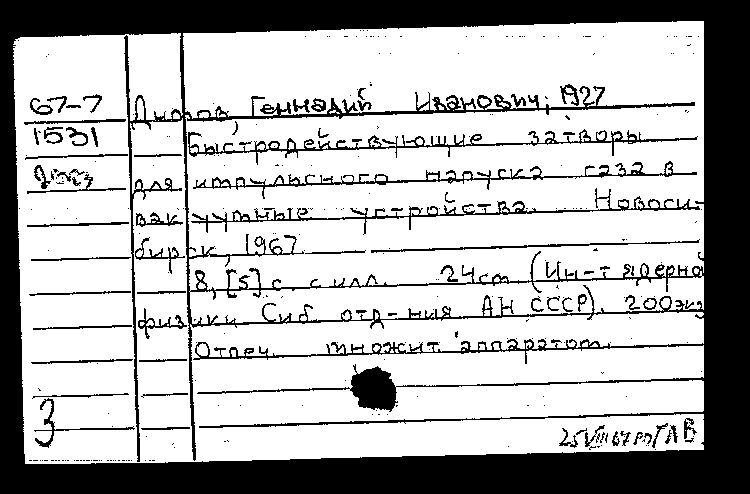 67-7
1531
Димов, Геннадий Иванович, 1927
Быстродействующие затворы
для импульсного напуска газа в
вакуумные устройства. Новоси-
бирск, 1967.
8, [5] с. с илл. 24 cm (Ин-т ядерной
физики Сиб. отд-ния АН СССР). 200 экз
Отпеч. множит. аппаратом.
3